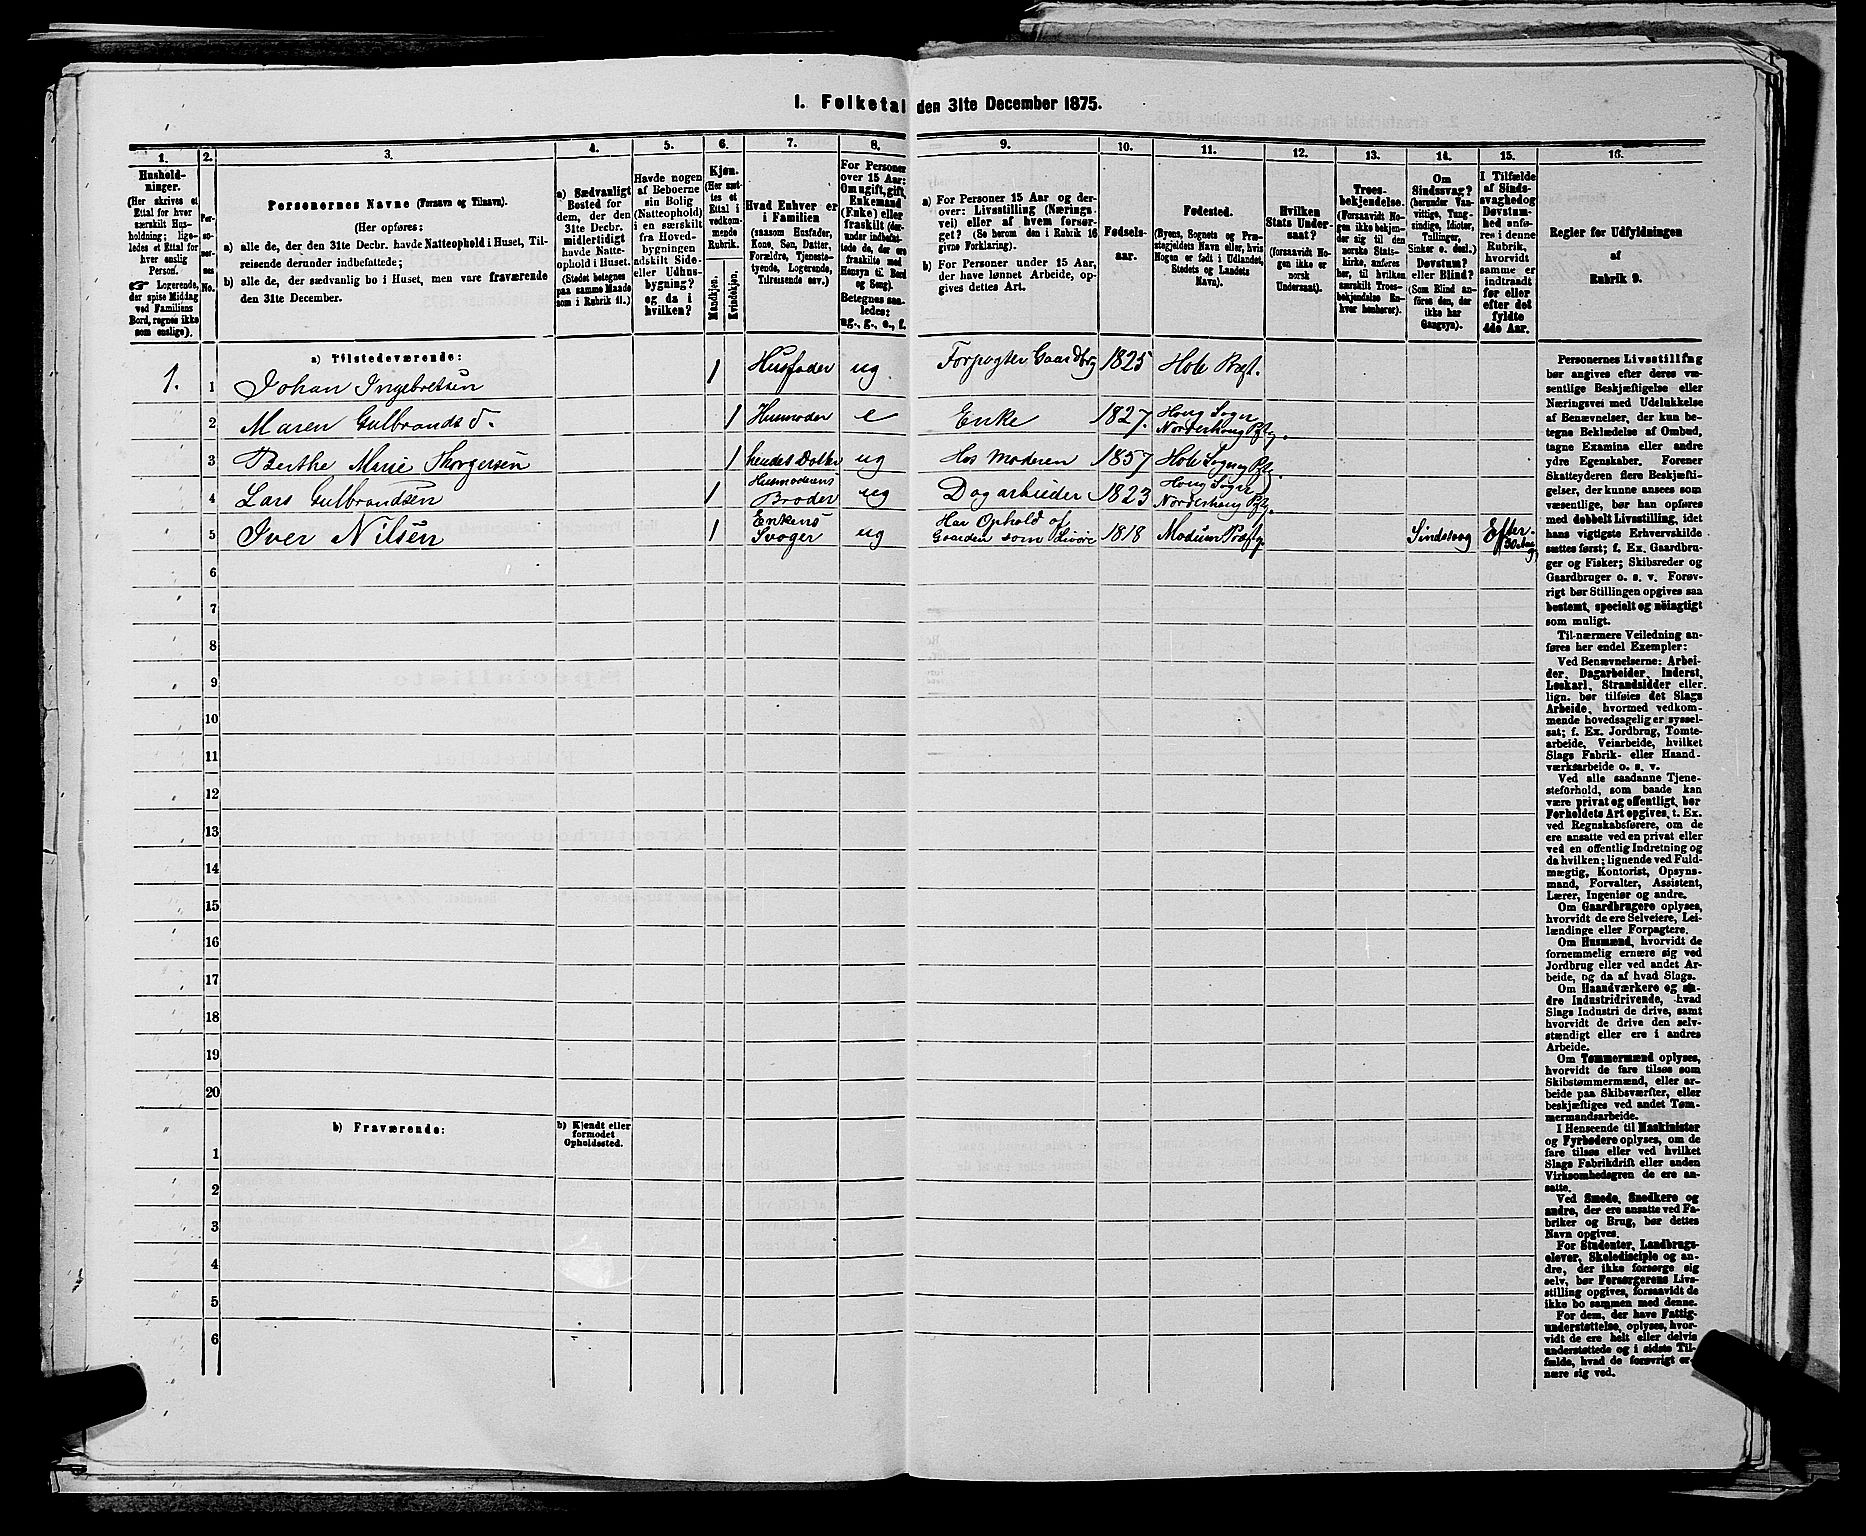 I. Folketal den 31te December 1875.
1.
Hushold-
ninger.
(Her skrives et
Ettal for hver
særskilt Hus-
holdning; lige-
ledes et Ettal for
hver enslig
Person.
☞ Logerende,
der spise Middag
ved Familiens
Bord, regnes ikke
som enslige).
2.
Per-
so-
ner-
nes
No.
3.
Personernes Navne (Fornavn og Tilnavn).
(Her opføres:
a) alle de, der den 31te Decbr. havde Natteophold i Huset, Til-
reisende derunder indbefattede;
b) alle de, der sædvanlig bo i Huset, men vare fraværende
den 31te December.
4.
a) Sædvanligt
Bosted for
dem, der den
31te Decbr.
midlertidigt
havde Natte-
ophold i Huset.
(Stedet betegnes
paa samme Maade
som i Rubrik 11.)
5.
Havde nogen
af Beboerne
sin Bolig
(Natteophold)
i en særskilt
fra Hoved-
bygningen
adskilt Side-
eller Udhus-
bygning?
og da i
hvilken?
6.
Kjøn.
(Her sæt-
tes et
Ettal i
vedkom-
mende
Rubrik.
Mandkjøn.
Kvindekjøn.
7.
Hvad Enhver er
i Familien
(saasom Husfader,
Kone, Søn, Datter,
Forældre, Tjeneste-
tyende, Logerende,
Tilreisende osv.)
8.
For Personer
over 15 Aar:
Om ugift, gift,
Enkemand
(Enke) eller
fraskilt (der-
under indbefat-
tede de, der ere
fraskilte med
Hensyn til Bord
og Seng).
Betegnes saa-
ledes:
ug., g., e., f.
9.
a) For Personer 15 Aar og der-
over: Livsstilling (Nærings-
vei) eller af hvem forsør-
get? (Se herom den i Rubrik 16
givne Forklaring).
b) For Personer under 15 Aar,
der have lønnet Arbeide, op-
gives dettes Art.
10.
Fødsels-
aar.
11.
Fødested.
(Byens, Sognets og Præ-
stegjeldets Navn eller, hvis
Nogen er født i Udlandet,
Stedets og Landets
Navn).
12.
Hvilken
Stats Under-
saat?
(forsaavidt No-
gen ikke er
norsk
Undersaat).
13.
Troes-
bekjendelse.
(Forsaavidt No-
gen ikke bekjen-
der sig til den
norske Stats-
kirke, anføres
her, til hvilken
særskilt Troes-
bekjendelse En-
hver henhører).
14.
Om
Sindssvag?
(herunder Van-
vittige, Tung-
sindige, Idioter,
Tullinger,
Sinker o. desl.)
Døvstum?
eller Blind?
(Som Blind an-
føres den, der
ikke har
Gangsyn).
15.
I Tilfælde
af Sinds-
svaghed og
Døvstum-
hed anfø-
res i denne
Rubrik,
hvorvidt
samme er
indtraadt
før eller
efter det
fyldte
4de Aar.
16.
Regler for Udfyldningen
af
Rubrik 9.
a) Tilstedeværende:
1. 1 Johan Ingebretsen 1 Husfader ug Forpagter Gaardbrg 1825 Hole Prgt.
2 Maren Gulbrands d. 1 Husmoder e Enke 1827. Houg Sogn Norderhoug Pftg.
3 Berthe Marie Thorgersen 1 hendes Datter ug Hos Moderen 1857 Hole Sogn og Pft.
4 Lars Gulbrandsen 1 Husmoderens Broder ug Dagarbeider 1823 Houg Sogn Norderhoug Pftg.
5 Iver Nilsen 1 Enkens Svoger ug Har Ophold af Gaarden som 1818 Modum Præstg. Sindssvag Efter
6
7
8
9
10
11
12
13
14
15
16
17
18
19
20
b) Fraværende:
b) Kjendt eller
formodet
Opholdssted.
1
2
3
4
5
6
Personernes Livsstilling
bør angives efter deres væ-
sentlige Beskjæftigelse eller
Næringsvei med Udelukkelse
af Benævnelser, der kun be-
tegne Beklædelse af Ombud,
tagne Examina eller andre
ydre Egenskaber. Forener
Skatteyderen flere Beskjæfti-
gelser, der kunne ansees som
væsentlige, bør han opføres
med dobbelt Livsstilling, idet
hans vigtigste Erhvervskilde
sættes først; f. Ex. Gaardbru-
ger og Fisker; Skibsreder og
Gaardbruger o. s. v. Forøv-
rigt bør Stillingen opgives saa
bestemt, specielt og nøiagtigt
som muligt.
Til nærmere Veiledning an-
føres her endel Exempler:
Ved Benævnelserne: Arbei-
der, Dagarbeider, Inderst,
Løskarl, Strandsidder eller
lign. bør tilføies det Slags
Arbeide, hvormed vedkom-
mende hovedsagelig er syssel-
sat; f. Ex. Jordbrug, Tomte-
arbeide, Veiarbeide, hvilket
Slags Fabrik- eller Haand-
værksarbeide o. s. v.
Ved alle saadanne Tjene-
steforhold, som baade kan
være privat og offentligt, bør
Forholdets Art opgives, t. Ex.
ved Regnskabsførere, om de
ere ansatte ved en privat eller
ved en offentlig Indretning og
da hvilken; lignende ved Fuld-
mægtig, Kontorist, Opsyns-
mand, Forvalter, Assistent,
Lærer, Ingeniør og andre.
Om Gaardbrugere oplyses,
hvorvidt de ere Selveiere, Lei-
lændinge eller Forpagtere.
Om Husmænd, hvorvidt de
fornemmelig ernære sig ved
Jordbrug eller ved andet Ar-
beide, og da af hvad Slags.
Om Haandværkere og an-
dre Industridrivende, hvad
Slags Industri de drive, samt
hvorvidt de drive den selv-
stændigt eller ere i andres
Arbeide.
Om Tømmermænd oplyses,
hvorvidt de fare tilsøs som
Skibstømmermænd, eller ar-
beide paa Skibsværfter, eller
beskjæftiges ved andet Tøm-
mermandsarbeide.
I Henseende til Maskinister
og Fyrbødere oplyses, om de
fare tilsøs eller ved hvilket
Slags Fabrikdrift eller anden
Virksomhedsgren de ere an-
satte.
Ved Smede, Snedkere og
andre, der ere ansatte ved Fa-
briker og Brug, bør dettes
Navn opgives.
For Studenter, Landbrugs-
elever, Skoledisciple og an-
dre, der ikke forsørge sig
selv, bør Forsørgerens Livs-
stilling opgives, forsaavidt de
ikke bo sammen med denne.
For dem, der have Fattig-
understøttelse, oplyses, hvor-
vidt de ere helt eller delvis
understøttede og i sidste Til-
fælde, hvad de forøvrigt er-
nære sig ved.